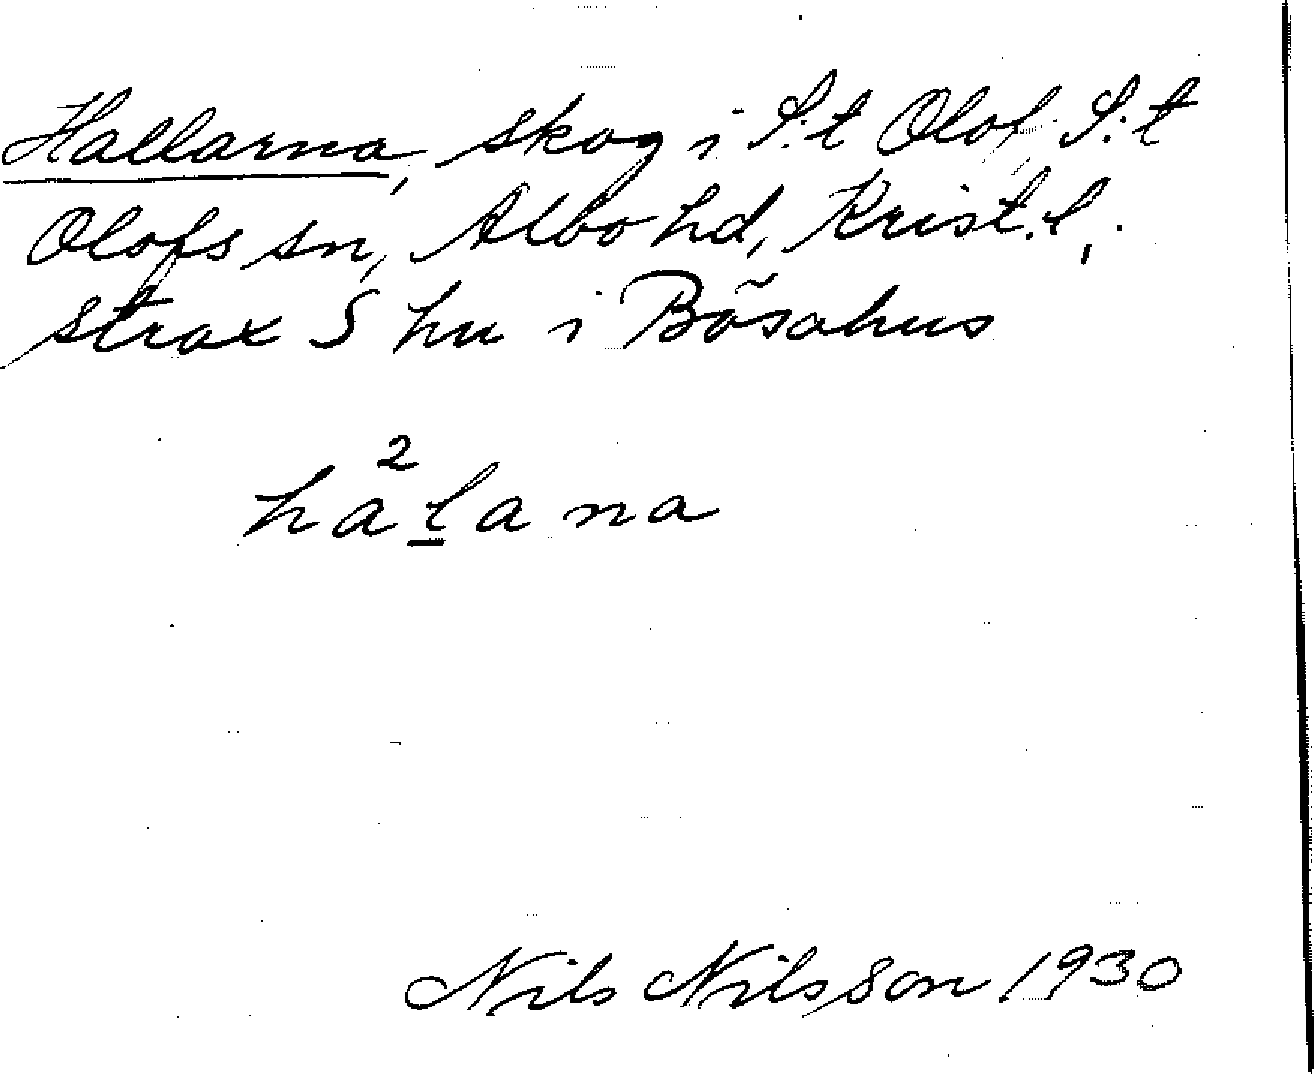 Hallarna, skog i S:t Olof, S:t
Olofs sn, Albo hd, Krist. l,
strax S hu i Bõsahus
ha²l̲ana
Nils Nilsson 1930